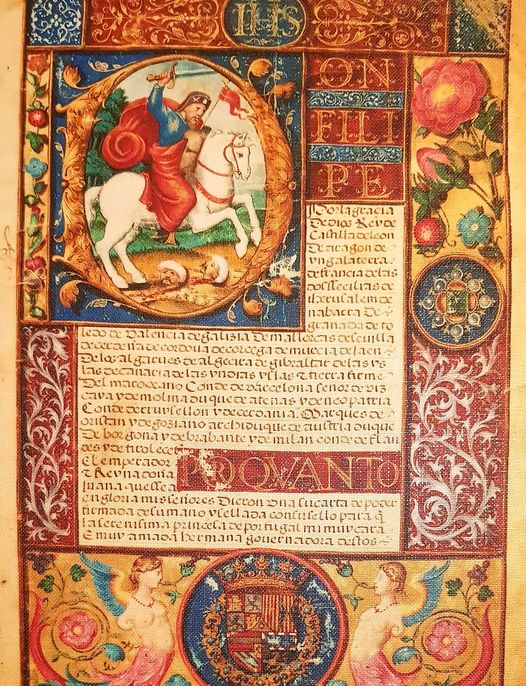 IHS
DON
FILI
PE
Por la gracia
De dios Rey de
Castilla de leon
De aragon de
yngalaterra
de francia de las
dos secilias de
iherusalem de
nabarra De
granada de to
ledo de Valencia de galizia De mallorcas de seuilla
de cerdeña de cordoua de corcega de murcia de Jaen
De los algarues de algecira de gibraltar de las ys
las de canaria de las yndias yslas e tierra firme
Del mar oceano Conde de varcelona señor de viz
caya y de molina duque de atenas y de neopatria
Conde de ruysellon y de cerdania Marques de
oristan y de goziano archiduque de austria duque
de borgoña y de brabante y de milan conde de flan
des y de tirol ecet
El emperador
e Reyna doña
Juana
POR QVANTO
en gloria mis señores Dieron Una su carta de poder
firmada de su mano y sellada con su sello para q
la serenisima princesa de portugal mi muy cara
E muy amada hermana gouernadora destos